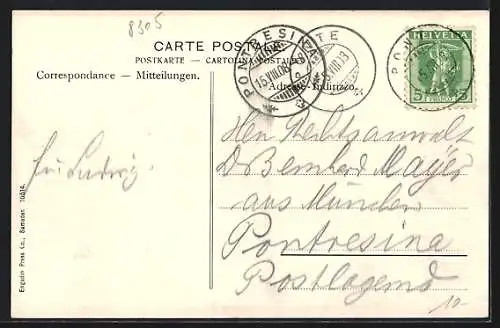 8305
CARTE POSTALE
POSTKARTE – CARTOLINA POSTALE
Correspondance – Mitteilungen.
Adresse-Indirizzo.
PONTRESINA
15.VIII.08
HELVETIA
5 5
Herrn Rechtsanwalt
Dr Bernhard Mayer
aus München
Pontresina
Postlagernd
Ludwig.
Engadin Press Co., Samaden
10.-